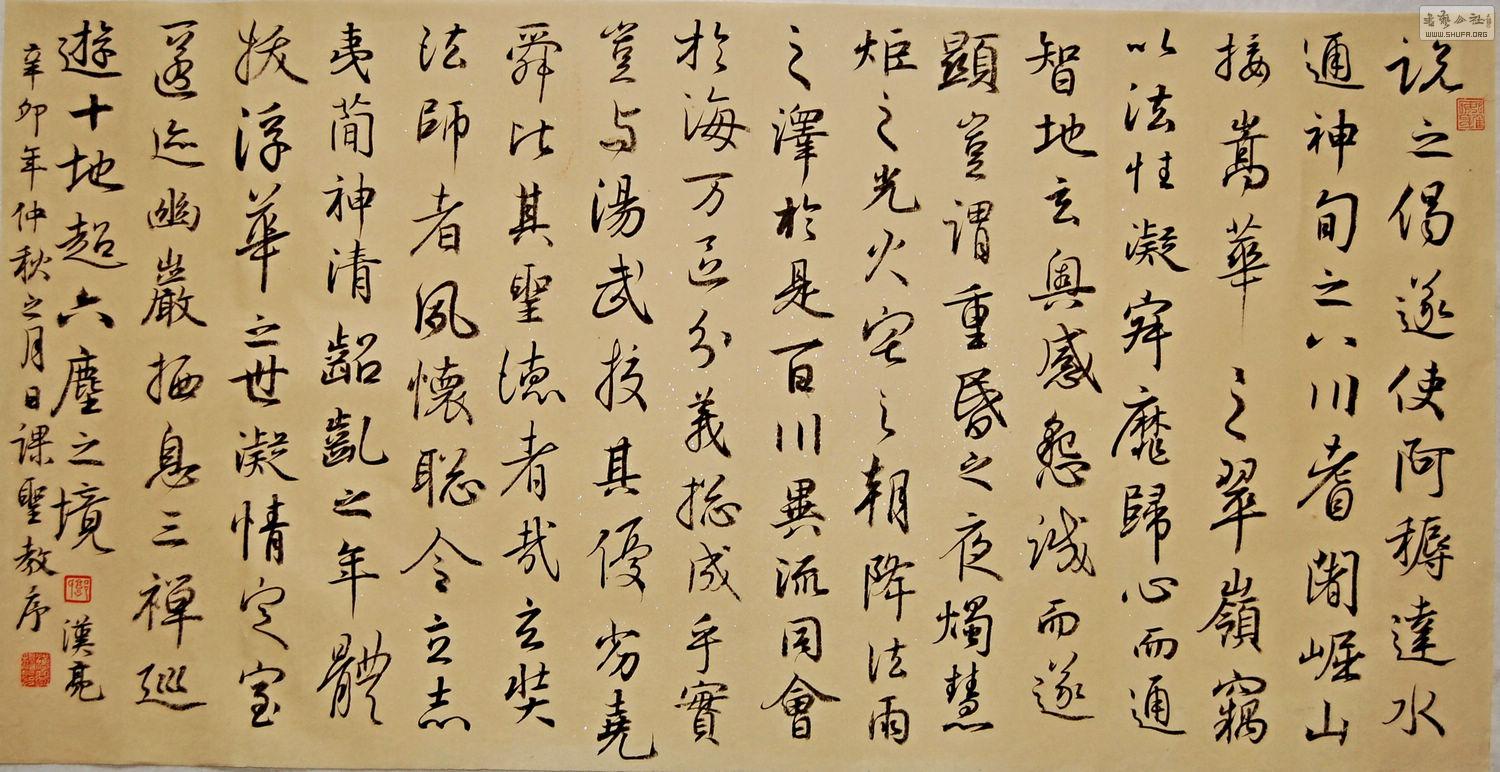 說之偈遂使阿耨達水
通神甸之八川耆闍崛山
接嵩華之翠嶺竊
以法性凝寂靡歸心而通
智地玄奧感懇誠而遂
顯豈謂重昏之夜燭慧
炬之光火宅之朝降法雨
之澤於是百川異流同會
於海万區分義總成乎實
豈与湯武校其優劣堯
舜比其聖德者哉玄奘
法師者夙懷聡令立志
夷簡神清齠齔之年體
拔浮華之世凝情定室
匿迹幽巖栖息三禪巡
遊十地超六塵之境
漢亮
辛卯年仲秋之月日課聖教序
书艺公社
WWW.SHUFA.ORG